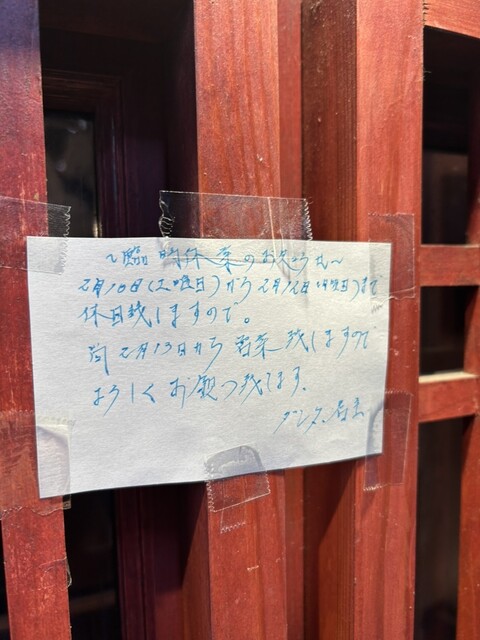 〜臨時休業のお知らせ〜
2月10日(土曜日)から2月12日(月曜日)まで
休日致しますので。
尚2月13日から営業致しますので
よろしくお願い致します。
店主